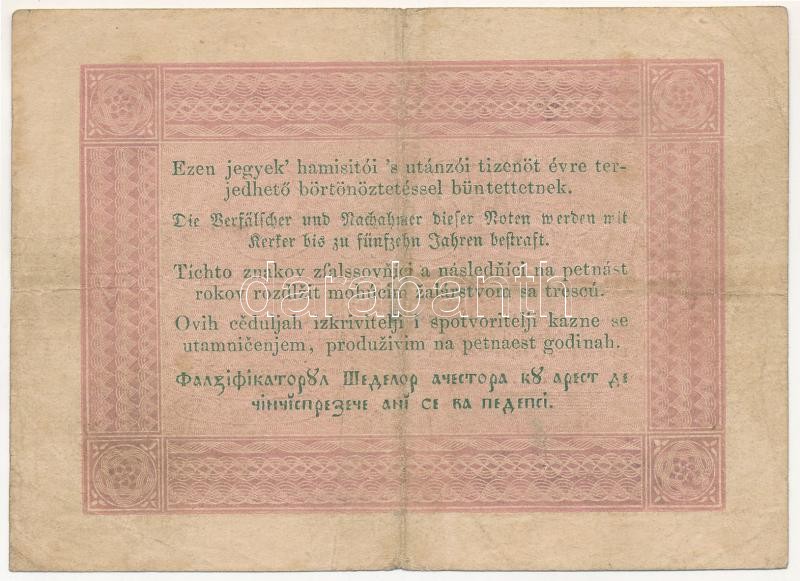 Ezen jegyek' hamisitói 's utánzói tizenöt évre ter-
jedhető börtönöztetéssel büntettetnek.
Die Verfälscher und Nachahmer dieser Noten werden mit
Kerker bis zu fünfzehn Jahren bestraft.
Tíchto znakov zfalssovňíci a následňíci na petnást
rokov rozdlžit mohúcím žalárstvom sa trescú.
darabanth
Ovih cěduljah izkrivitelji i spotvoritelji kazne se
utamničenjem, produživim na petnaest godinah.
Фалзіфікаторꙋл Шеделор ачестора кꙋ арест де
чінчіспрезече анї се ва педепсі.